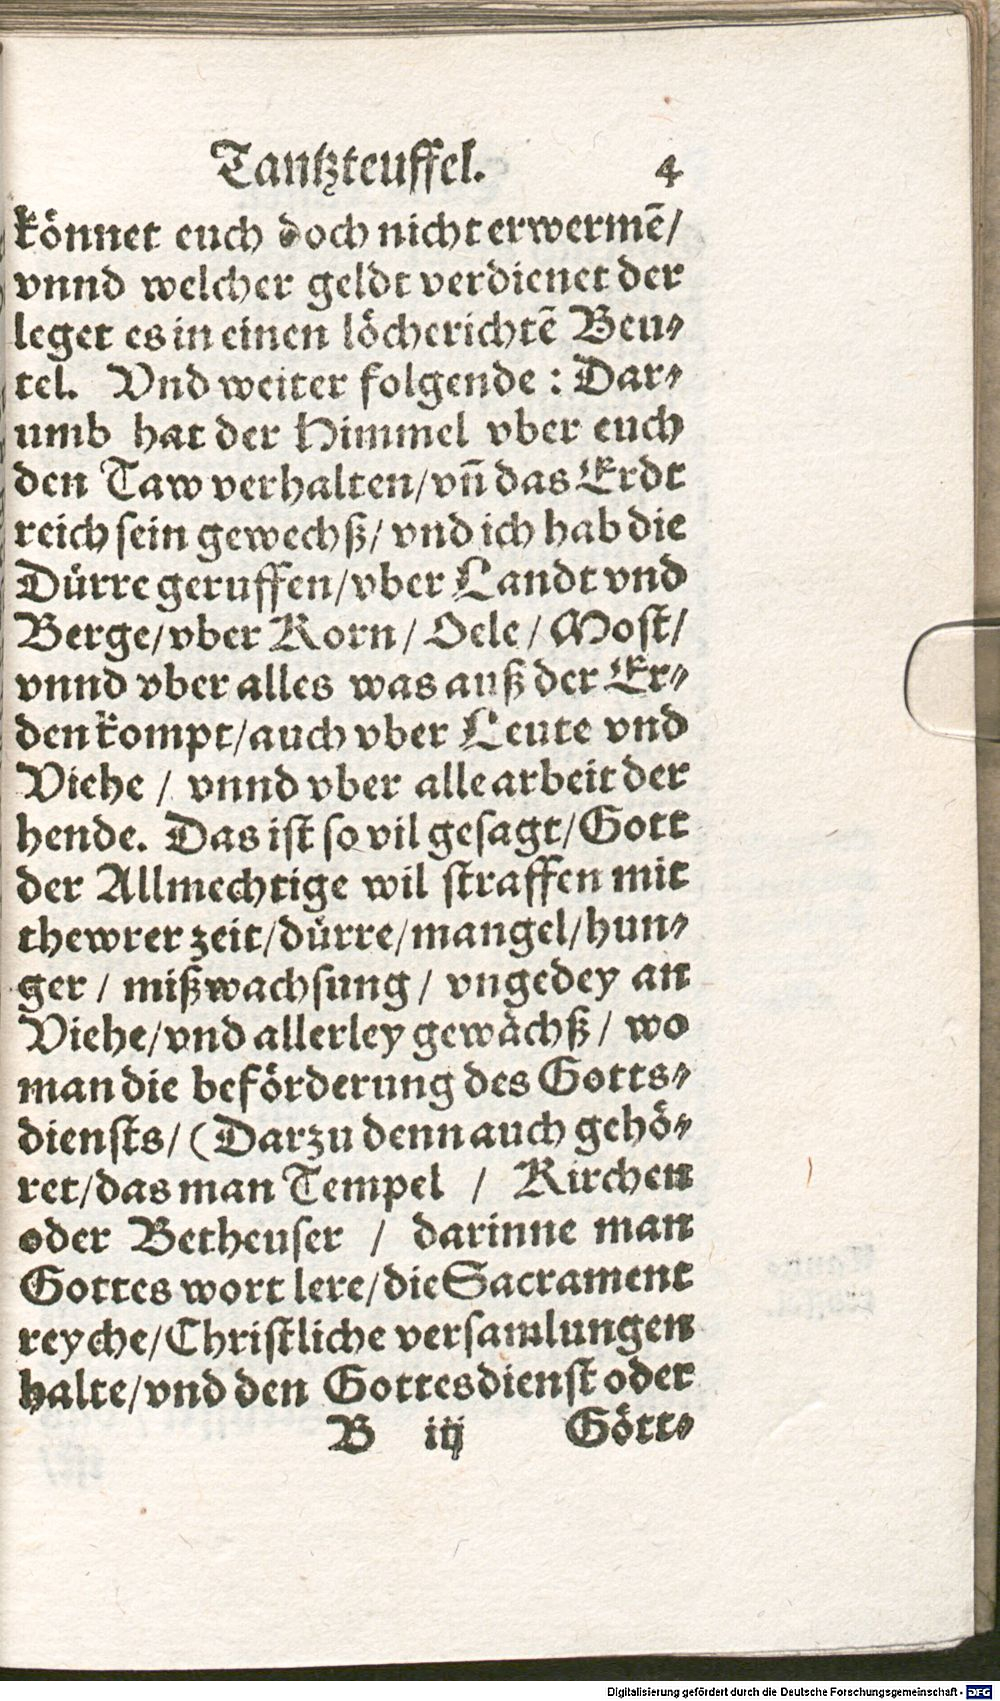 Tantzteuffel. 4
könnet euch doch nicht erwermē/
vnnd welcher geldt verdienet der
leget es in einen löcherichtē Beu⸗
tel. Vnd weiter folgende: Dar⸗
umb hat der Himmel vber euch
den Taw verhalten/vñ das Erdt
reich sein gewechß/ vnd ich hab die
Dürre geruffen/vber Landt vnd
Berge/vber Korn/ Oele/ Most/
vnnd vber alles was auß der Er⸗
den kompt/auch vber Leute vnd
Viehe/ vnnd vber alle arbeit der
hende. Das ist so vil gesagt/Gott
der Allmechtige wil straffen mit
thewrer zeit/dürre/mangel/hun⸗
ger/ mißwachsung/ vngedey an
Viehe/vnd allerley gewächß/ wo
man die beförderung des Gotts⸗
diensts/(Darzu denn auch gehö⸗
ret/das man Tempel / Kirchen
oder Betheuser / darinne man
Gottes wort lere/die Sacrament
reyche/Christliche versamlungen
halte/vnd den Gottesdienst oder
B iij Gött⸗
Digitalisierung gefördert durch die Deutsche Forschungsgemeinschaft - DFG